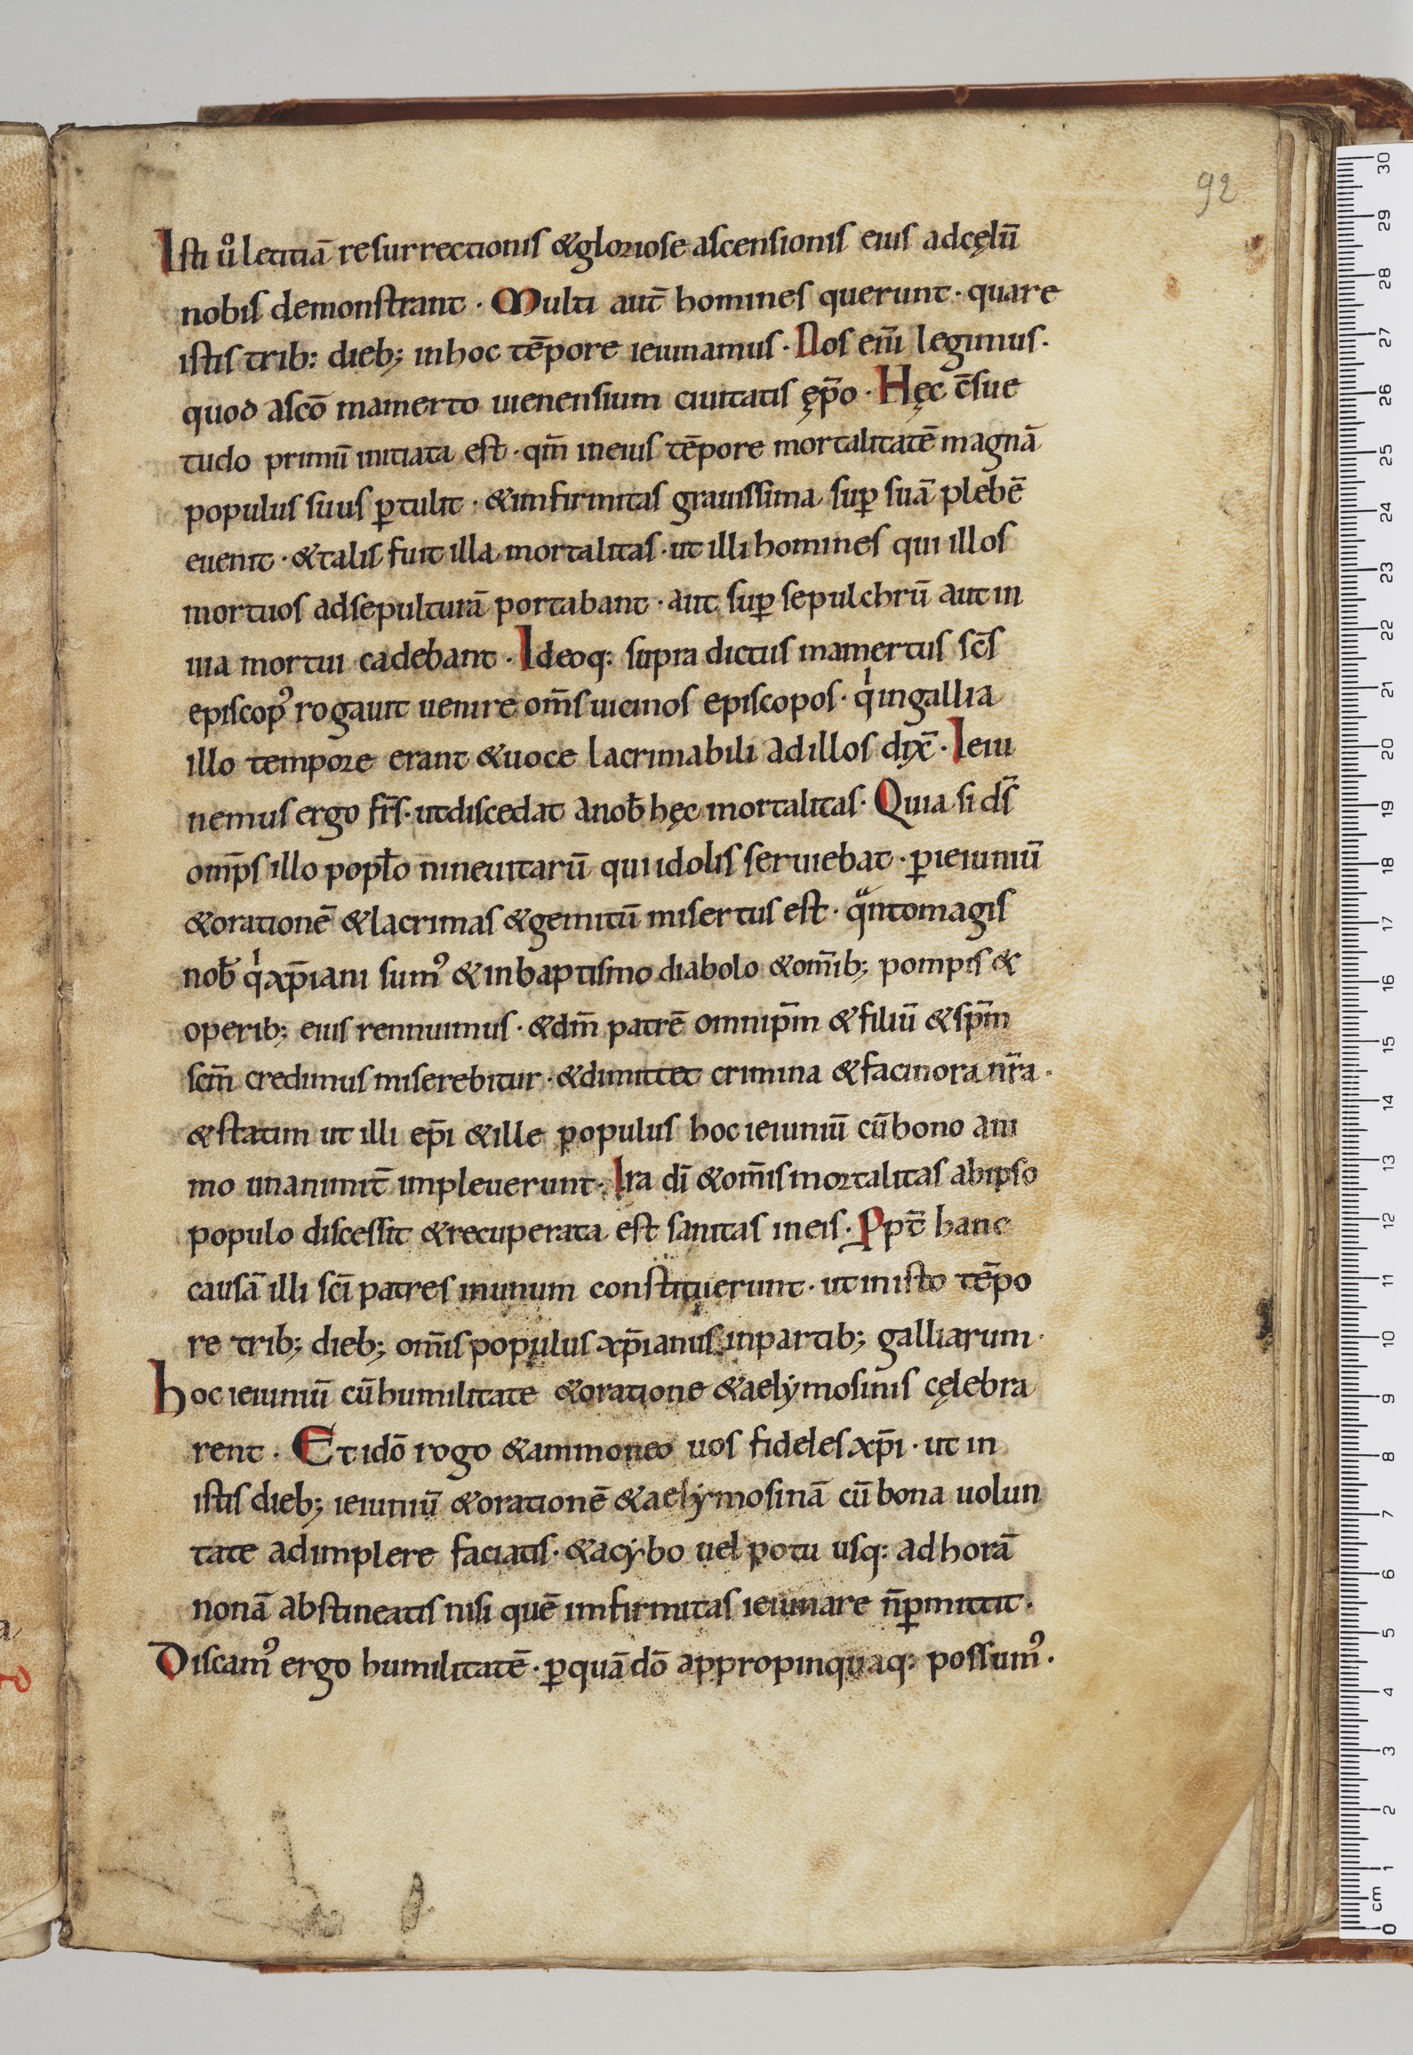 92
Isti u͛ letitiā resurrectionis &gloriose ascensionis eius adcęlū
nobis demonstrant · Multi aut̄ homines querunt · quare
istis trib: dieb; inhoc tēpore ieiunamus · Nos em̄ legimus ·
quod ascō mamerto uienensium ciuitatis ęp̄o · Hęc c̄sue
tudo primū initiata est · qm̄ ineius tēpore mortalitatē magnā
populus suus ꝑtulit · &infirmitas grauissima suꝑ suā plebē
euenit · &talis fuit illa mortalitas · ut illi homines qui illos
mortuos adsepulturā portabant · aut suꝑ sepulchrū aut in
uia mortui cadebant · Ideoq: supra dictus mamertus sc̄s
episcopꝰ rogauit uenire om̄s uicinos episcopos · qͥ ingallia
illo tempore erant &uoce lacrimabili adillos dix̄ · Ieiu
nemus ergo fr̄s · utdiscedat anob̄ hęc mortalitas · Quia si ds̄
omp̄s illo popl̄o nineuitarū qui idolis seruiebat · ꝑieiuniū
&orationē &lacrimas &gemitū misertus est · qͣntomagis
nob̄ qͥ xp̄iani sumꝰ &inbaptismo diabolo &om̄ib; pompis &
operib; eius rennuimus · &dm̄ patrē omnip̄m &filiū &sp̄m
scm̄ credimus miserebitur · &dimittet crimina &facinora nr̄a ·
&statim ut illi ep̄i &ille populus hoc ieiuniū cū bono ani
mo unanimit̄ impleuerunt · Ira dī &om̄is mortalitas abipso
populo discessit &recuperata est sanitas ineis · Ꝓpt̄ hanc
causā illi scī patres inunum constituerunt · ut inisto tēpo
re trib; dieb; om̄is populus xp̄ianus inpartib; galliarum ·
hoc ieiuniū cū humilitate &oratione &aelẏmosinis cęlebra
rent · Et idō rogo &ammoneo uos fideles xp̄i · ut in
istis dieb; ieiuniū &orationē &aelẏmosinā cū bona uolun
tate adimplere faciatis · &acẏbo uel potu usq: adhorā
nonā abstineatis nisi quē imfirmitas ieiunare n̄ꝑmittit ·
Discamꝰ ergo humilitatē · ꝑquā dō appropinquaq: possumꝰ ·